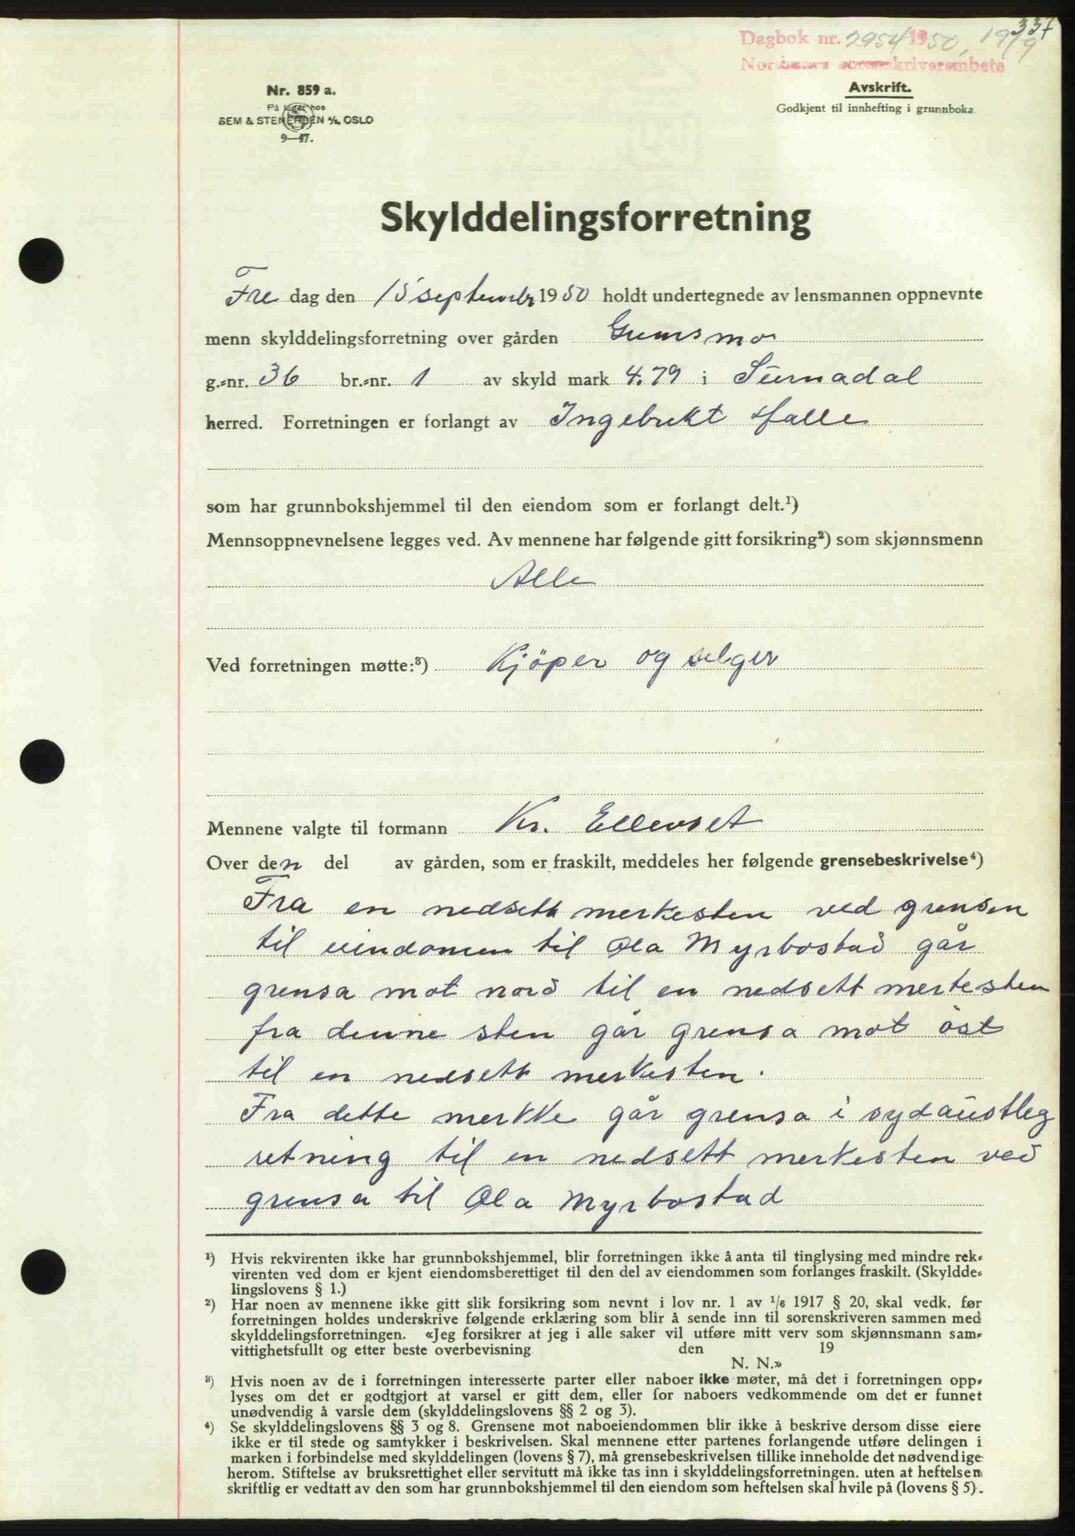 337
Dagbok nr. 2954 1950, 19/9
Nordmøre sorenskriverembete
Nr. 859 a.
På lager hos
SEM & STENERSEN A/S, OSLO
9—47.
Avskrift.
Godkjent til innhefting i grunnboka.
Skylddelingsforretning
Fre dag den 15 september 1950 holdt undertegnede av lensmannen oppnevnte
menn skylddelingsforretning over gården
g.=nr. 36 br.=nr. 1 av skyld mark 4.79 i Surnadal
herred. Forretningen er forlangt av Ingebrikt Halle
som har grunnbokshjemmel til den eiendom som er forlangt delt.¹)
Mennsoppnevnelsene legges ved. Av mennene har følgende gitt forsikring²) som skjønnsmenn
Alle
Ved forretningen møtte:³) Kjöper og selger
Mennene valgte til formann Kr. Ellevset
Over den del av gården, som er fraskilt, meddeles her følgende grensebeskrivelse⁴)
Fra en nedsett merkesten ved grensen
til eiendomen til Ola Myrbostad går
grensa mot nord til en nedsett merkesten
fra denne sten går grensa mot öst
til en nedsett merkesten.
Fra dette merkke går grensa i sydaustleg
retning til en nedsett merkesten ved
grensa til Ola Myrbostad
¹) Hvis rekvirenten ikke har grunnbokshjemmel, blir forretningen ikke å anta til tinglysing med mindre rek=
virenten ved dom er kjent eiendomsberettiget til den del av eiendommen som forlanges fraskilt. (Skyldde=
lingslovens § 1.)
²) Har noen av mennene ikke gitt slik forsikring som nevnt i lov nr. 1 av 1/6 1917 § 20, skal vedk. før
forretningen holdes underskrive følgende erklæring som blir å sende inn til sorenskriveren sammen med
skylddelingsforretningen. «Jeg forsikrer at jeg i alle saker vil utføre mitt verv som skjønnsmann sam=
vittighetsfullt og etter beste overbevisning den 19
N. N.»
³) Hvis noen av de i forretningen interesserte parter eller naboer ikke møter, må det i forretningen opp=
lyses om det er godtgjort at varsel er gitt dem, eller for naboers vedkommende om det er funnet
unødvendig å varsle dem (skylddelingslovens §§ 2 og 3).
⁴) Se skylddelingslovens §§ 3 og 8. Grensene mot naboeiendommen blir ikke å beskrive dersom disse eiere
ikke er til stede og samtykker i beskrivelsen. Skal mennene etter partenes forlangende utføre delingen i
marken i forbindelse med skylddelingen (lovens § 7), må grensebeskrivelsen tillike inneholde det nødvendige
herom. Stiftelse av bruksrettighet eller servitutt må ikke tas inn i skylddelingsforretningen. uten at heftelsen
skriftlig er vedtatt av den som har grunnbokshjemmel til den eiendom som heftelsen skal hvile på (lovens § 5).